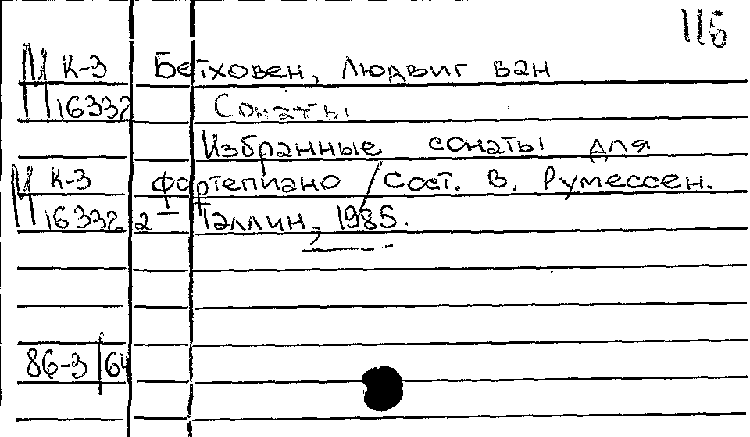 115
М К-3 Бетховен, Людвиг ван
16332 Сонаты
Избранные сонаты для
М К-3 фортепиано / Сост. В. Румессен.
16332 2 – Таллин, 1985.
86-3 64